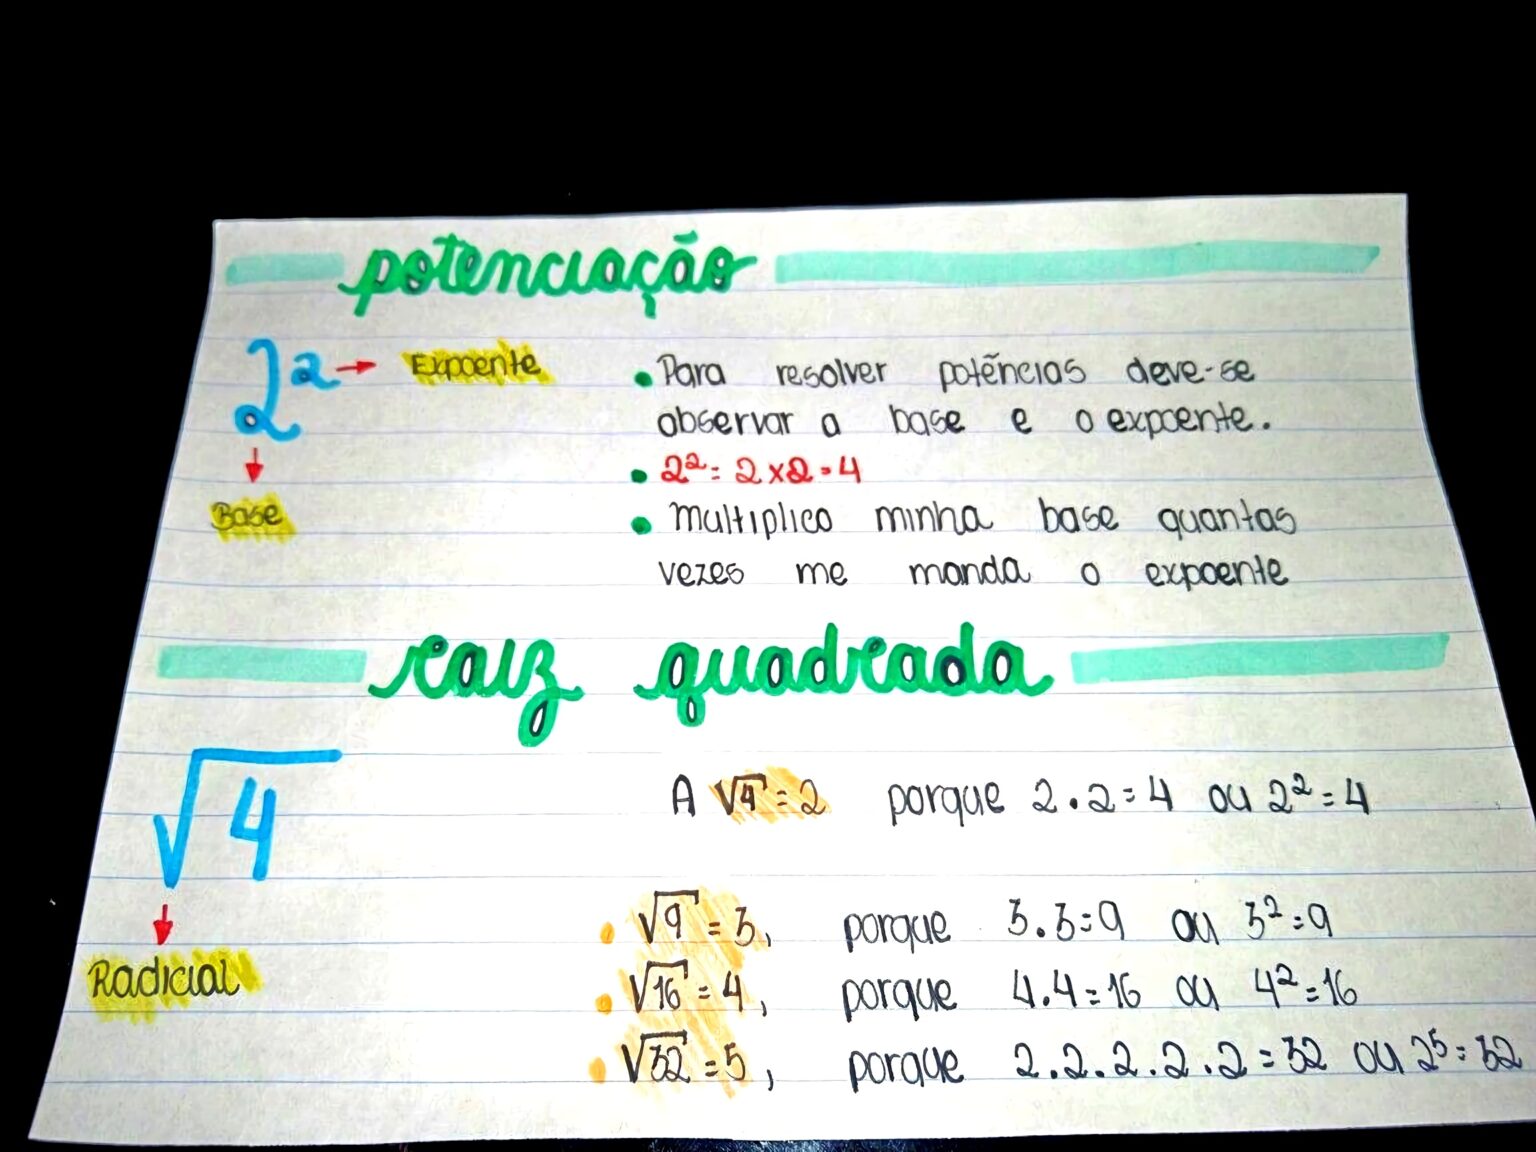 potenciação
2² → Expoente
Base
• Para resolver potências deve-se
observar a base e o expoente.
• 2² = 2 x 2 = 4
• Multiplico minha base quantas
vezes me manda o expoente
raiz quadrada
√4
Radicial
A √4 = 2 porque 2.2 = 4 ou 2² = 4
• √9 = 3, porque 3.3 = 9 ou 3² = 9
• √16 = 4, porque 4.4 = 16 ou 4² = 16
• √32 = 5, porque 2.2.2.2.2 = 32 ou 2⁵ = 32